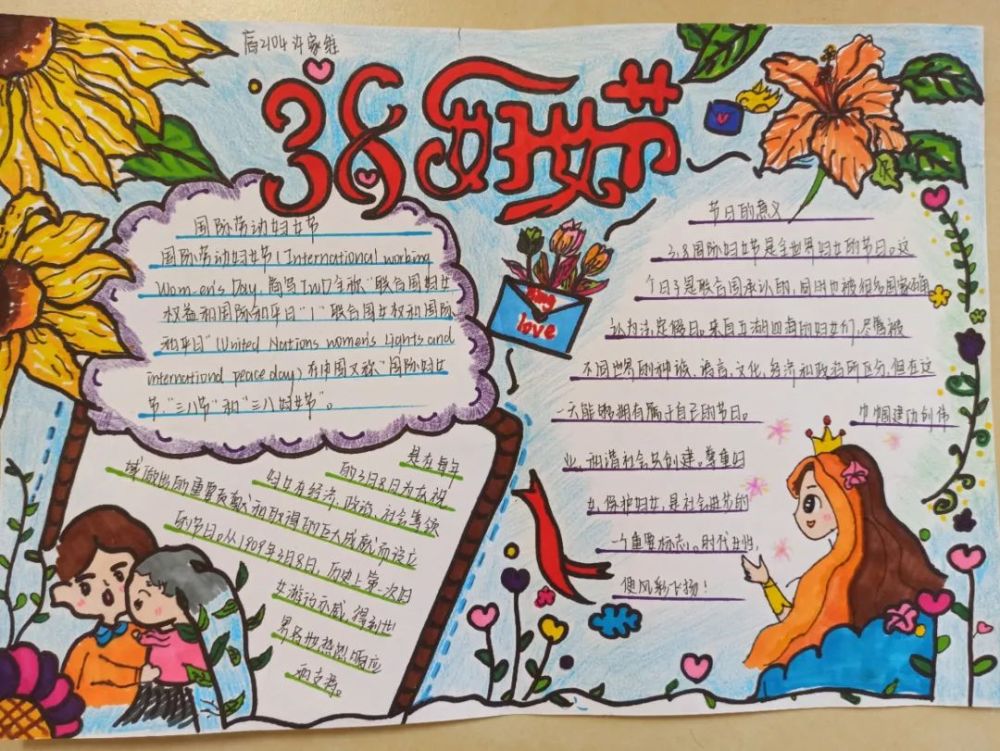 38妇女节
国际劳动妇女节
国际劳动妇女节(International working
Women's Day,简写IWD全称"联合国妇女
权益和国际和平日"(联合国女权和国际
和平日"(United Nations women's rights and
international peace day)在中国又称"国际妇女
节"三八节"和"三八妇女节"。
love
节日的意义
3.8国际妇女节是全世界妇女的节日。这
个日子是联合国承认的,同时也被很多国家确
认为法定假日。来自五湖四海的妇女们,尽管被
不同世界的种族、语言、文化、经济和政治所区分,但在这
一天能够拥有属于自己的节日。 巾帼建功创伟
业,和谐社会共创建。尊重妇
女,保护妇女,是社会进步的
一个重要标志。时代女性,
便风彩飞扬!
是在每年
的3月8日为庆祝
妇女在经济、政治、社会等领
域做出的重要贡献和取得的巨大成就而设立
的节日。从1909年3月8日,历史上第一次妇
女游行示威,得到世
界各地热烈响应
和支持。